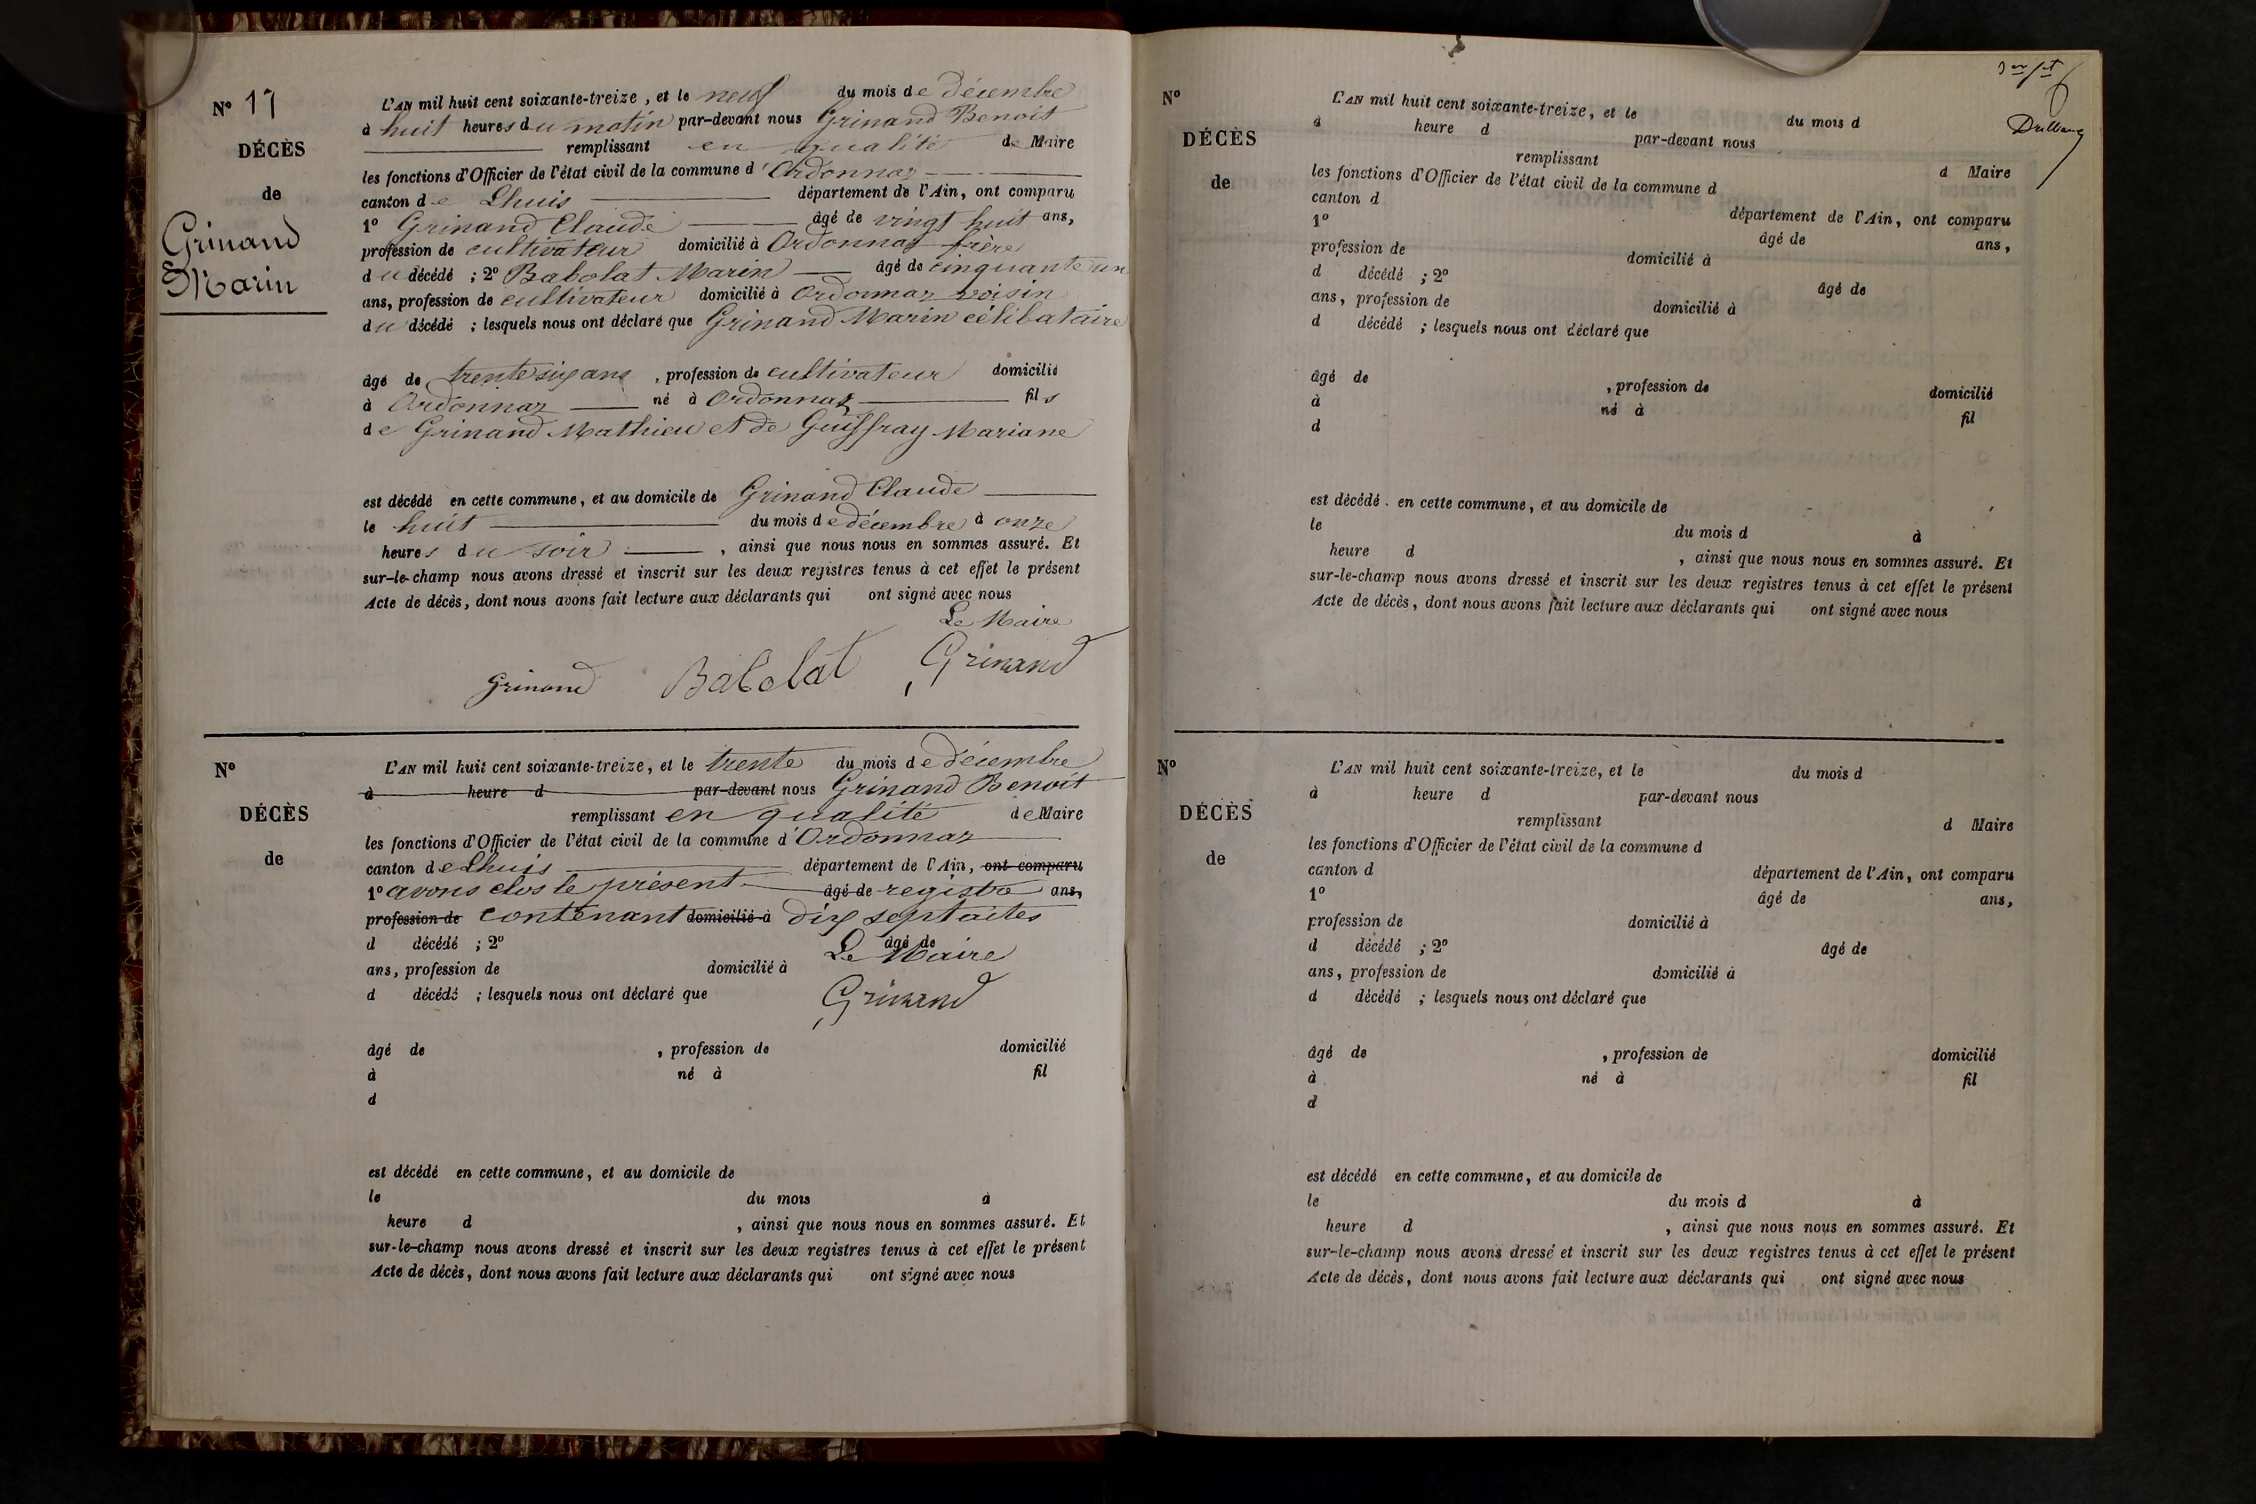 N° 17
DÉCÈS
de
Grinand
Marin
L'AN mil huit cent soixante-treize, et le neuf du mois de décembre
à huit heures du matin par-devant nous Grinand Benoit
remplissant en qualité de Maire
les fonctions d'Officier de l'état civil de la commune d'Ordonnaz
canton de Lhuis département de l'Ain, ont comparu
1° Grinand Claude âgé de vingt huit ans,
profession de cultivateur domicilié à Ordonnaz frère
du décédé ; 2° Babolat Marin âgé de cinquante un
ans, profession de cultivateur domicilié à Ordonnaz voisin
du décédé ; lesquels nous ont déclaré que Grinand Marin célibataire
âgé de trente six ans , profession de cultivateur domicilié
à Ordonnaz né à Ordonnaz fils
de Grinand Mathieu et de Guiffray Mariane
est décédé en cette commune, et au domicile de Grinand Claude
le huit du mois de décembre à onze
heures du soir , ainsi que nous nous en sommes assuré. Et
sur-le-champ nous avons dressé et inscrit sur les deux registres tenus à cet effet le présent
Acte de décès, dont nous avons fait lecture aux déclarants qui ont signé avec nous
Le Maire
Grinand Babolat Grinand
N°
DÉCÈS
de
L'AN mil huit cent soixante-treize, et le trente du mois de décembre
à heure d par-devant nous Grinand Benoit
remplissant en qualité de Maire
les fonctions d'Officier de l'état civil de la commune d'Ordonnaz
canton de Lhuis département de l'Ain, ont comparu
1° avons clos le présent âgé de registre ans,
profession de contenant domicilié à dix sept actes
d décédé ; 2° âgé de
Le Maire
ans, profession de domicilié à
d décédé ; lesquels nous ont déclaré que Grinand
âgé de , profession de domicilié
à né à fil
d
est décédé en cette commune, et au domicile de
le du mois à
heure d , ainsi que nous nous en sommes assuré. Et
sur-le-champ nous avons dressé et inscrit sur les deux registres tenus à cet effet le présent
Acte de décès, dont nous avons fait lecture aux déclarants qui ont signé avec nous
N°
DÉCÈS
de
L'AN mil huit cent soixante-treize, et le du mois d
à heure d par-devant nous
remplissant d Maire
les fonctions d'Officier de l'état civil de la commune d
canton d département de l'Ain, ont comparu
1° âgé de ans,
profession de domicilié à
d décédé ; 2° âgé de
ans, profession de domicilié à
d décédé ; lesquels nous ont déclaré que
âgé de , profession de domicilié
à né à fil
d
est décédé en cette commune, et au domicile de
le du mois d à
heure d , ainsi que nous nous en sommes assuré. Et
sur-le-champ nous avons dressé et inscrit sur les deux registres tenus à cet effet le présent
Acte de décès, dont nous avons fait lecture aux déclarants qui ont signé avec nous
N°
DÉCÈS
de
L'AN mil huit cent soixante-treize, et le du mois d
à heure d par-devant nous
remplissant d Maire
les fonctions d'Officier de l'état civil de la commune d
canton d département de l'Ain, ont comparu
1° âgé de ans,
profession de domicilié à
d décédé ; 2° âgé de
ans, profession de domicilié à
d décédé ; lesquels nous ont déclaré que
âgé de , profession de domicilié
à né à fil
d
est décédé en cette commune, et au domicile de
le du mois d à
heure d , ainsi que nous nous en sommes assuré. Et
sur-le-champ nous avons dressé et inscrit sur les deux registres tenus à cet effet le présent
Acte de décès, dont nous avons fait lecture aux déclarants qui ont signé avec nous